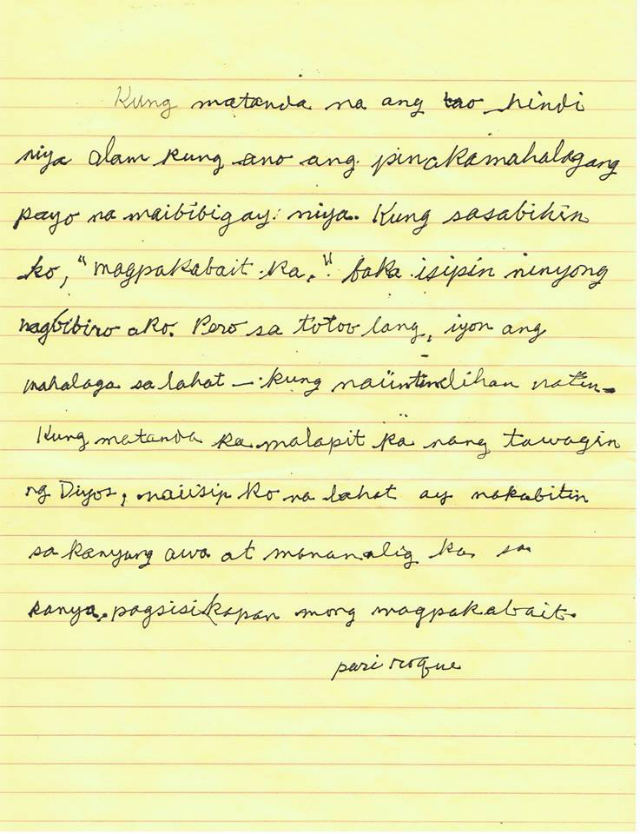 Kung matanda na ang tao hindi
niya alam kung ano ang pinakamahalagang
payo na maibibigay niya. Kung sasabihin
ko, "magpakabait ka," baka isipin ninyong
nagbibiro ako. Pero sa totoo lang, iyon ang
mahalaga sa lahat — kung naiintindihan natin.
Kung matanda ka malapit ka nang tawagin
ng Diyos, naiisip ko na lahat ay nakabitin
sa kanyang awa at mananalig ka sa
kanya, pagsisikapan mong magpakabait.
pari roque